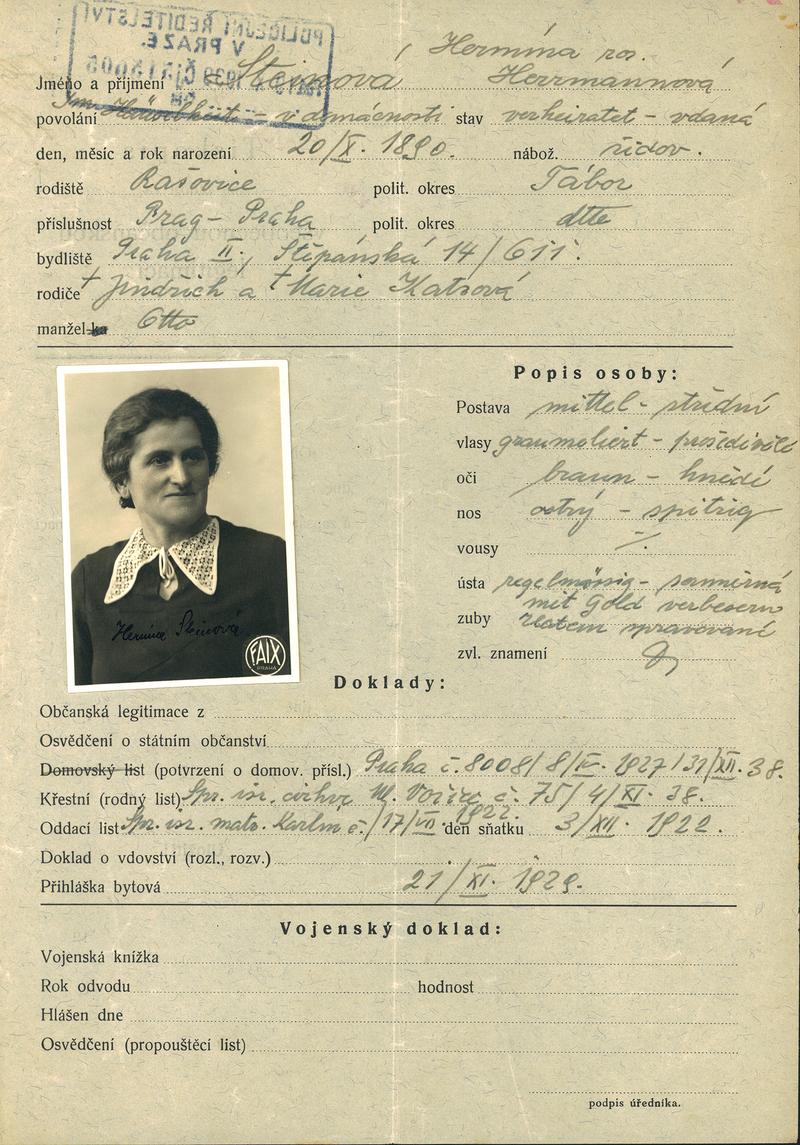 POLICEJNÍ ŘEDITELSTVÍ
V PRAZE.
Hermína roz.
Jméno a příjmení Steinová Herrmannová
povolání Im - v domácnosti stav verheiratet - vdaná
den, měsíc a rok narození 20/X. 1890. nábož. židov.
rodiště Rašovice polit. okres Tábor
příslušnost Prag - Praha polit. okres dtto
bydliště Praha II., Štěpánská 14/611.
rodiče † Jindřich a † Marie Katzová
manžel-ka Otto
Popis osoby:
Postava mittel - střední
vlasy graumeliert - prošedivělé
oči braun - hnědé
nos ostrý - spitzig
vousy /.
ústa regelmässig - souměrná
mit Gold verbessern
zuby zlatem spravované
zvl. znamení
Hermína Steinová
FAIX
PRAHA
Doklady:
Občanská legitimace z
Osvědčení o státním občanství
Domovský list (potvrzení o domov. přísl.) Praha č. 8008/8/IV. 1927/31/XII. 38.
Křestní (rodný list) Spr. isr. církve č. 75/4/XI. 38.
Oddací list Spr. isr. mato. Karlín č./17/VII. 1922. den sňatku 3/XII. 1922.
Doklad o vdovství (rozl., rozv.)
Přihláška bytová 21/XI. 1929.
Vojenský doklad:
Vojenská knížka
Rok odvodu hodnost
Hlášen dne
Osvědčení (propouštěcí list)
podpis úředníka.